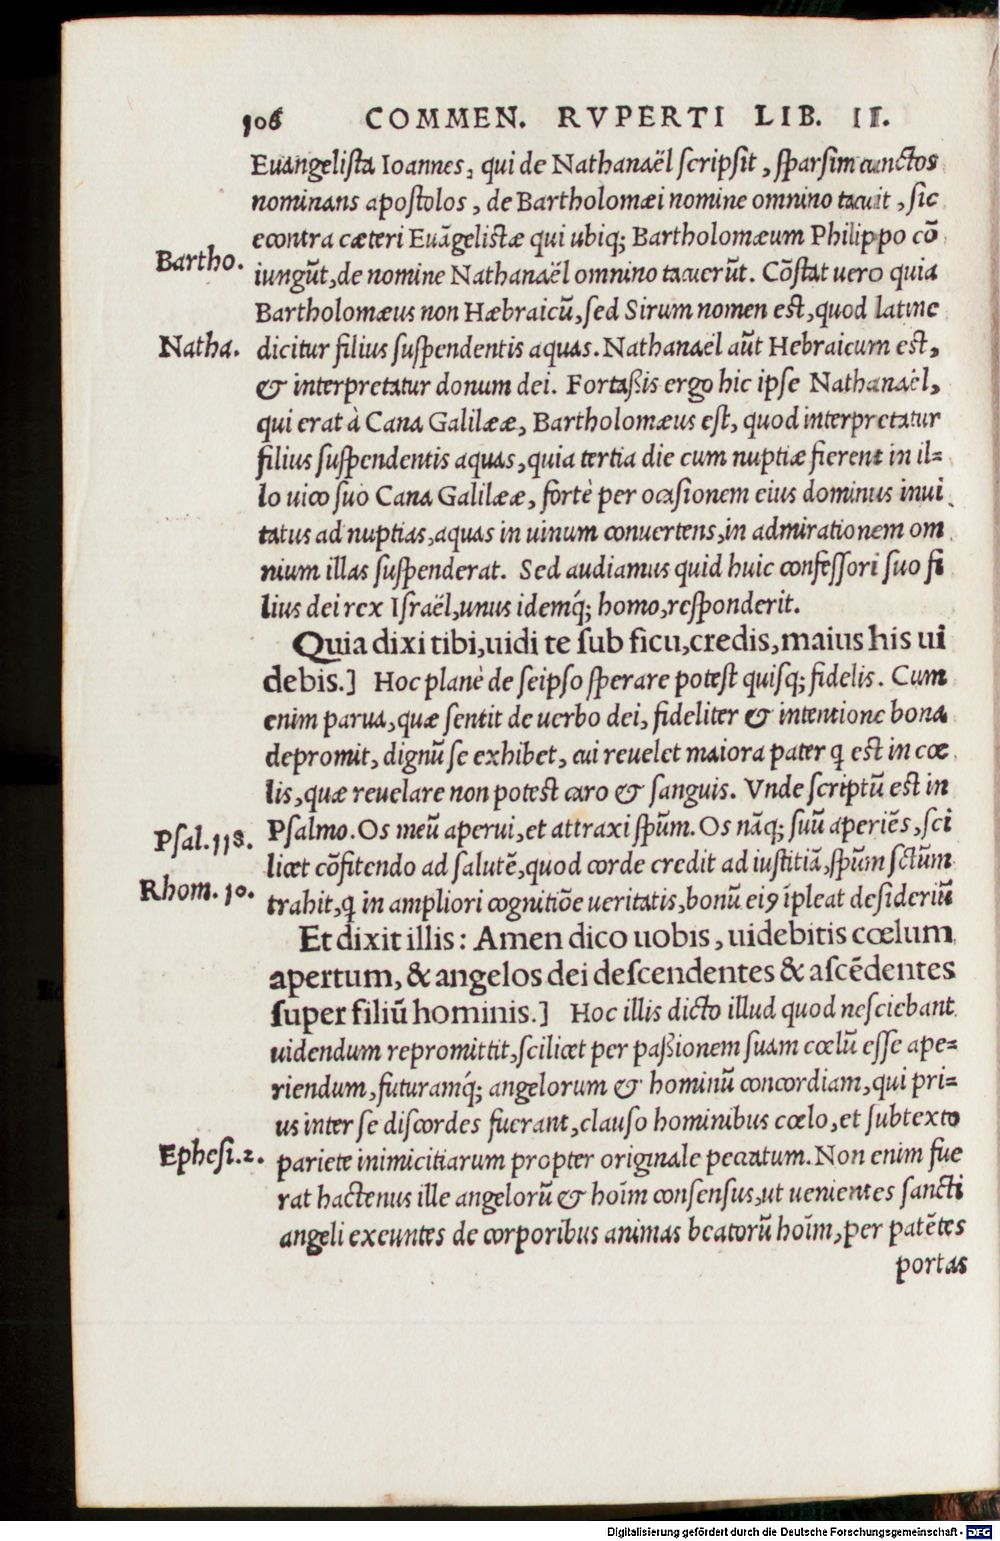 106 COMMEN. RVPERTI LIB. II.
Euangelista Ioannes, qui de Nathanaël scripsit, sparsim cunctos
nominans apostolos, de Bartholomæi nomine omnino tacuit, sic
econtra cæteri Euāgelistæ qui ubiq; Bartholomæum Philippo cō
Bartho.
iungūt, de nomine Nathanaël omnino tacuerūt. Cōstat uero quia
Bartholomæus non Hæbraicū, sed Sirum nomen est, quod latine
Natha.
dicitur filius suspendentis aquas. Nathanaël aūt Hebraicum est,
& interpretatur donum dei. Fortaßis ergo hic ipse Nathanaël,
qui erat à Cana Galilææ, Bartholomæus est, quod interpretatur
filius suspendentis aquas, quia tertia die cum nuptiæ fierent in il=
lo uico suo Cana Galilææ, fortè per ocasionem eius dominus inui
tatus ad nuptias, aquas in uinum conuertens, in admirationem om
nium illas suspenderat. Sed audiamus quid huic confessori suo fi
lius dei rex Israël, unus idemq́; homo, responderit.
Quia dixi tibi, uidi te sub ficu, credis, maius his ui
debis.] Hoc planè de seipso sperare potest quisq; fidelis. Cum
enim parua, quæ sentit de uerbo dei, fideliter & intentione bona
depromit, dignū se exhibet, cui reuelet maiora pater q̨ est in cœ
lis, quæ reuelare non potest caro & sanguis. Vnde scriptū est in
Psal. 118.
Psalmo. Os meū aperui, et attraxi sp̄um. Os nāq; suū aperiēs, sci
licet cōfitendo ad salutē, quod corde credit ad iustitiā, sp̄um sctūm
Rhom. 10.
trahit, q̨ in ampliori cognitiōe ueritatis, bonū eiꝰ īpleat desideriū
Et dixit illis: Amen dico uobis, uidebitis cœlum
apertum, & angelos dei descendentes & ascēdentes
super filiū hominis.] Hoc illis dicto illud quod nesciebant
uidendum repromittit, scilicet per paßionem suam cœlū esse ape=
riendum, futuramq́; angelorum & hominū concordiam, qui pri=
us inter se discordes fuerant, clauso hominibus cœlo, et subtexto
Ephesi. 2.
pariete inimicitiarum propter originale peccatum. Non enim fue
rat hactenus ille angelorū & hoīm consensus, ut uenientes sancti
angeli exeuntes de corporibus animas beatorū hoīm, per patētes
portas
Digitalisierung gefördert durch die Deutsche Forschungsgemeinschaft - DFG